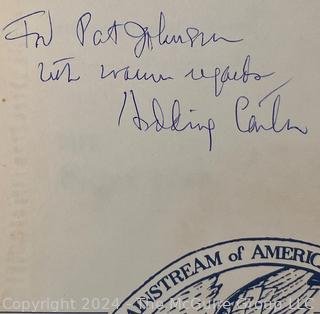 For Pat Johnson
with warm regards
Hodding Carter
MAINSTREAM of AMERICA
Copyright 2024 - The McGuire Group LLC